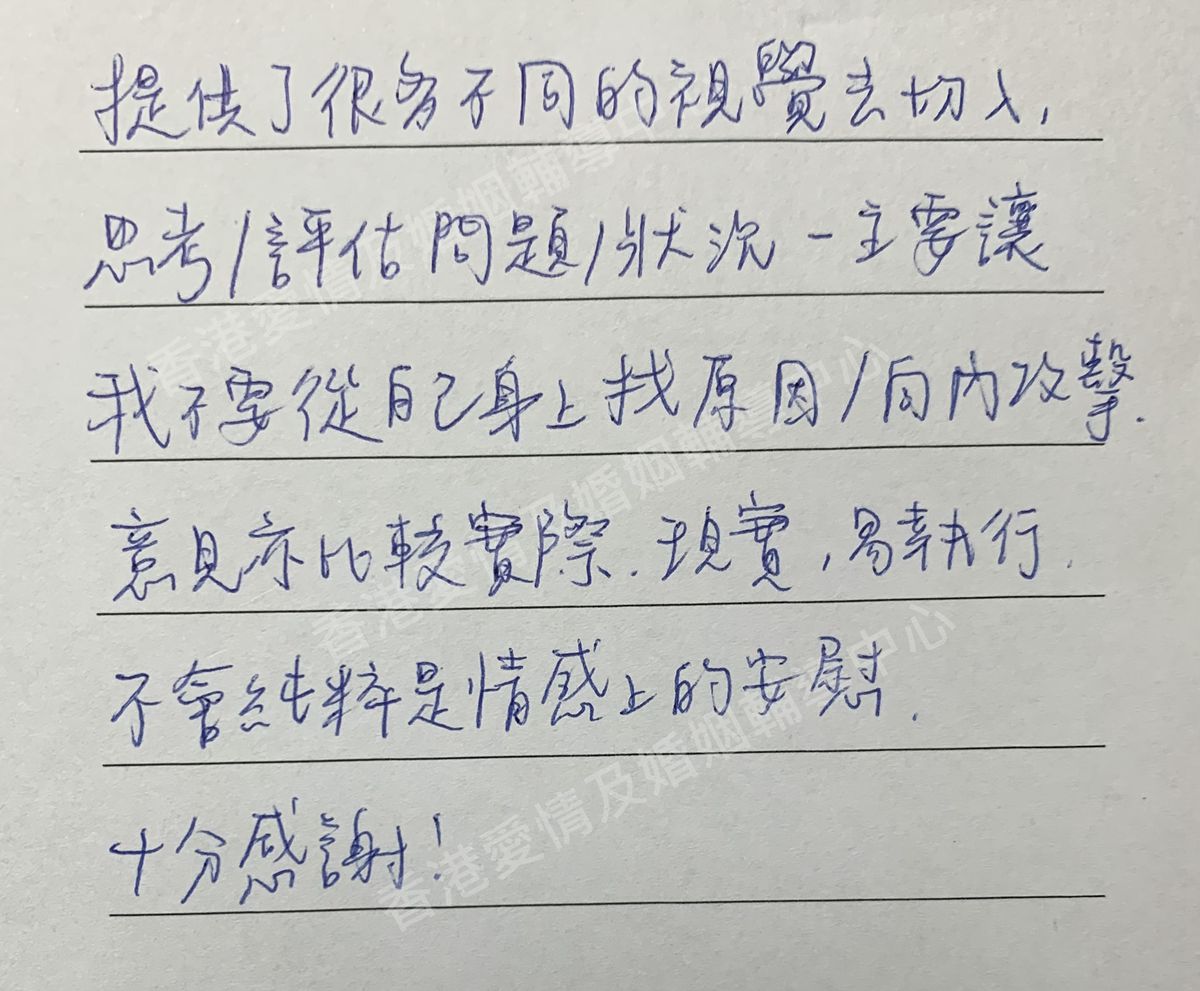 提供了很多不同的視覺去切入,
思考/評估問題/狀況 - 主要讓
我不要從自己身上找原因/向內攻擊.
意見亦比較實際.現實,易執行.
不會純粹是情感上的安慰.
十分感謝!
香港愛情及婚姻輔導中心
香港愛情及婚姻輔導中心
香港愛情及婚姻輔導中心